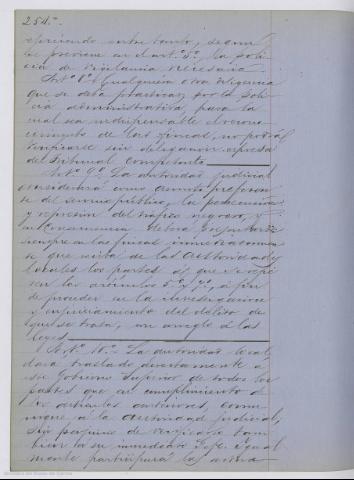 254.
ejerciendo entre tanto, segun
se previene en el art.º 5.º la poli-
cia de vigilancia necesaria.
Art.º 8.º Cualquiera otra diligencia
que se deba practicar por la poli-
cia administrativa, para la
cual sea indispensable el recono-
cimiento de las fincas, no podrá
verificarse sin delegacion espresa
del Tribunal competente.
Art.º 9.º La autoridad judicial
considerará como asunto preferen-
te del servicio público, la persecucion
y represion del tráfico negrero, y
en consecuencia deberá
siempre en las fincas inmediatamen-
te que reciba de las Autoridades
locales los partes á que se refie-
ren los artículos 5.º y 7.º, á fin
de proceder en la investigacion
y enjuiciamiento del delito de
que se trata, con arreglo á las
leyes.
Art.º 10.º La autoridad local
dará traslado directamente á
este Gobierno Superior de todos los
partes que en cumplimiento de
los artículos anteriores, comu-
nique á la autoridad judicial,
sin perjuicio de verificarlo tam-
bien á su inmediato Gefe. Igual-
mente participará las